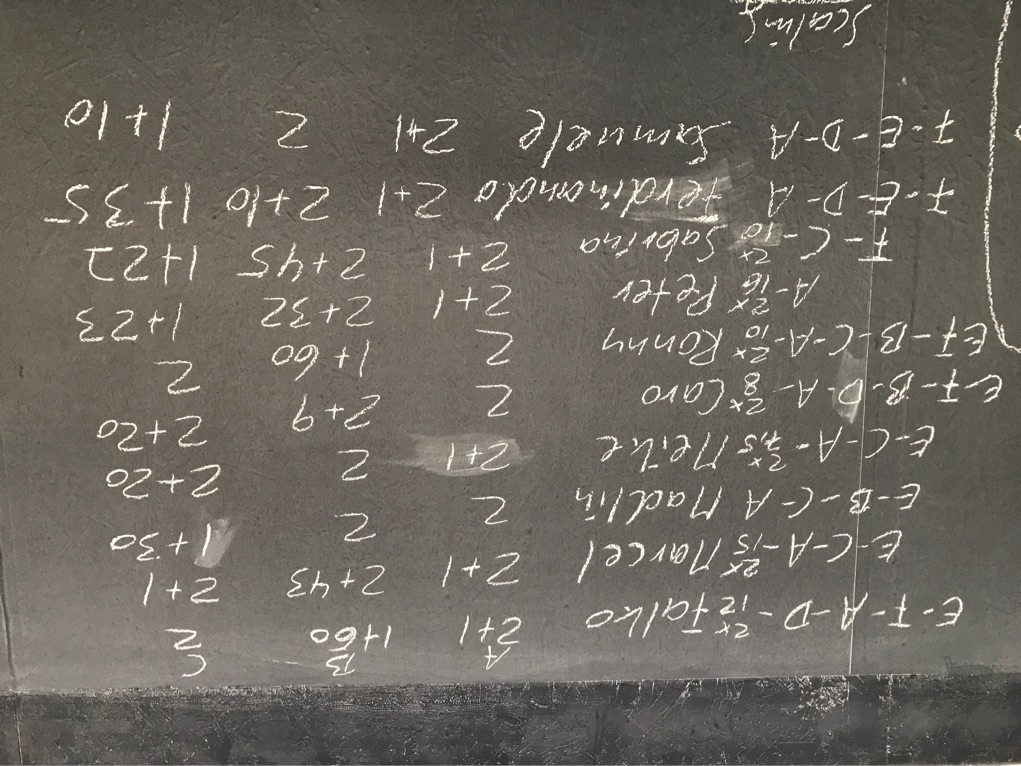 A B C
E-F-A-D-2x12 Falko 2+1 1+60 2
E-C-A-2x15 Marcel 2+1 2+43 2+1
E-B-C-A Madlin 2 2 1+30
E-C-A-2x7,5 Meike 2+1 2 2+20
E-F-B-D-A-2x8 Caro 2 2+9 2+20
E-F-B-C-A-2x10 Ronny 2 1+60 2
A-2x16 Peter 2+1 2+32 1+23
F-C-2x10 Sabrina 2+1 2+45 1+22
F-E-D-A Ferdinando 2+1 2+10 1+35
F-E-D-A Samuele 2+1 2 1+10
Scaling